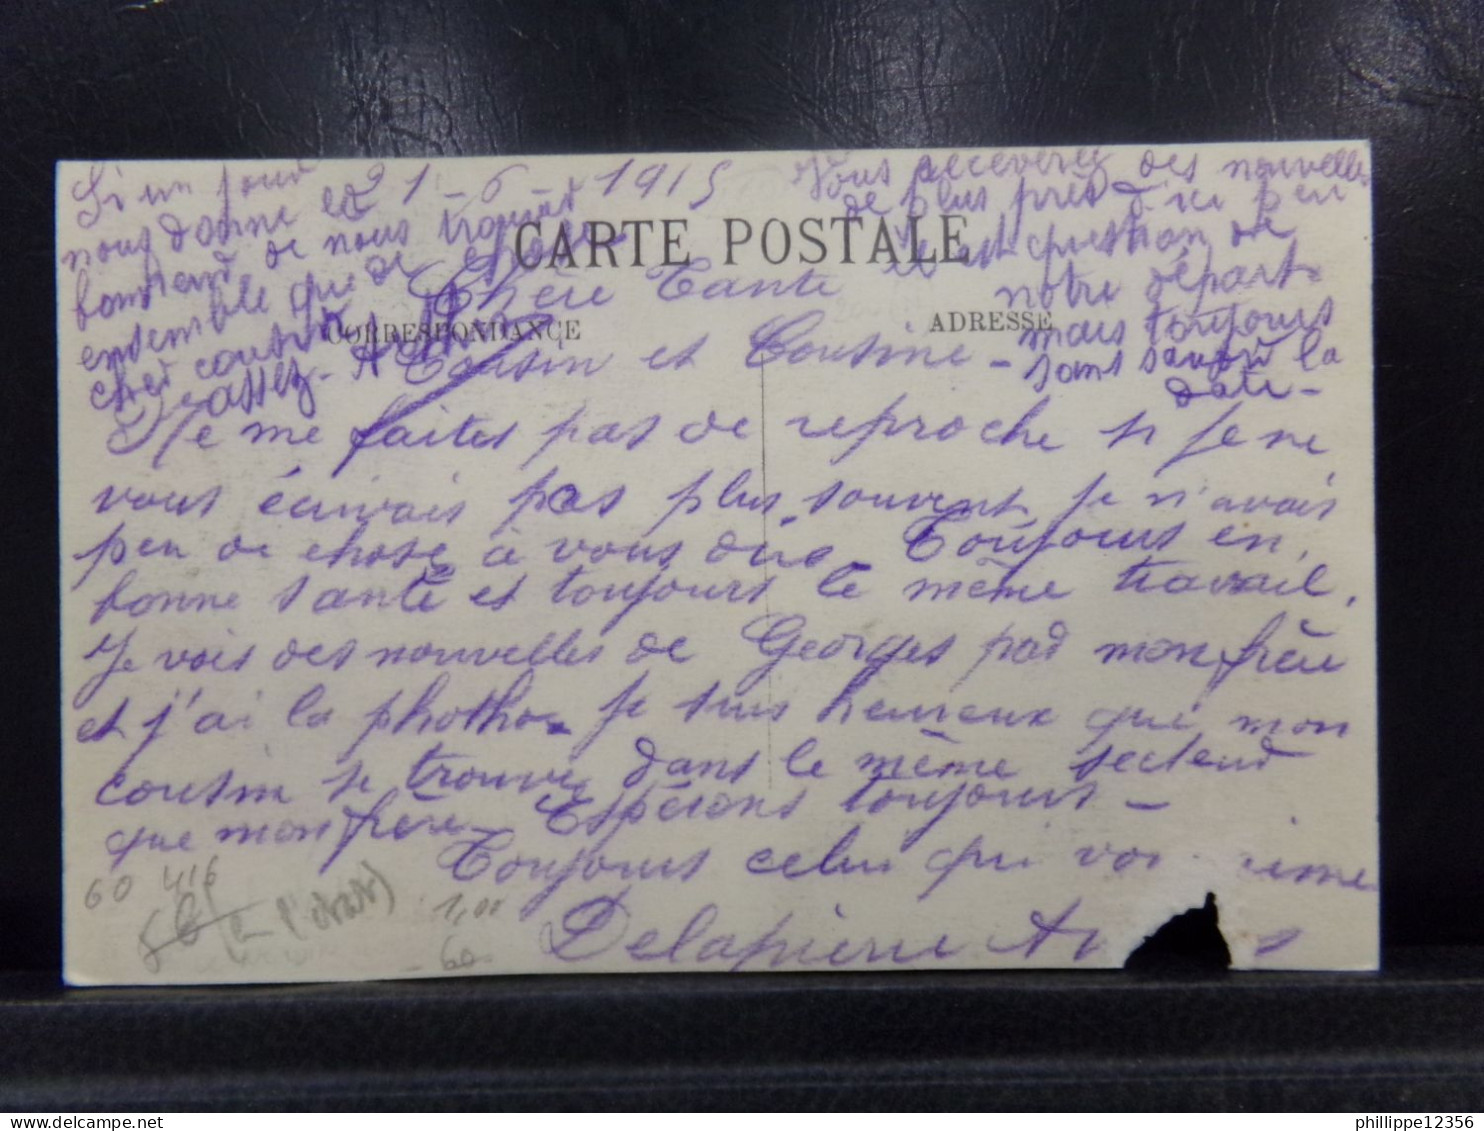 21-6-1915
CARTE POSTALE
CORRESPONDANCE
ADRESSE
Chère Tante
Cousin et Cousine -
Ne me faites pas de reproche si je ne
vous écrivais pas plus souvent je n'avais
peu de chose à vous dire. Toujours en
bonne santé et toujours le même travail.
Je vois des nouvelles de Georges par mon frère
et j'ai la photho. Je suis heureux que mon
cousin se trouve dans le même secteur
que mon frère. Espérons toujours -
Toujours celui qui vou aime
Delapierre A
Vous receverez des nouvelles
de plus près d'ici peu
il est question de
notre départ
mais toujours
sans savoir la
date -
Si un jour
nous donne le
bonheur de nous trouver
ensemble que de
cher cousin
assez.
60 416
1,00
60
phillippe12356